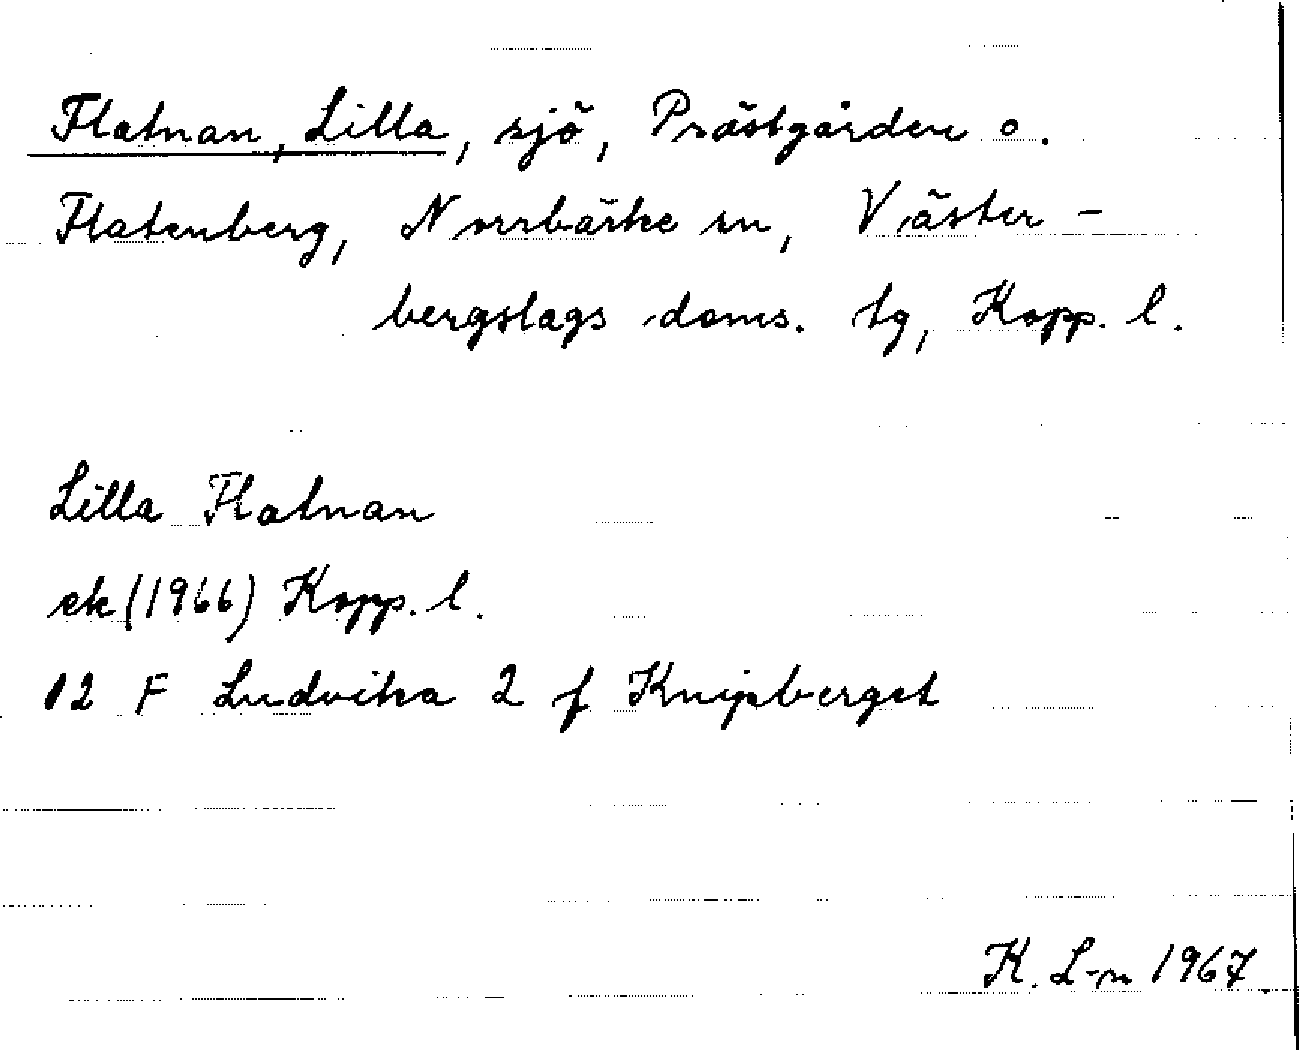 Flatnan, Lilla, sjö, Prästgården o.
Flatenberg, Norrbärke sn, Väster-
bergslags doms. tg, Kopp. l.
Lilla Flatnan
ek (1966) Kopp. l.
12 F Ludvika 2 f Knipberget
K. L-n 1967.